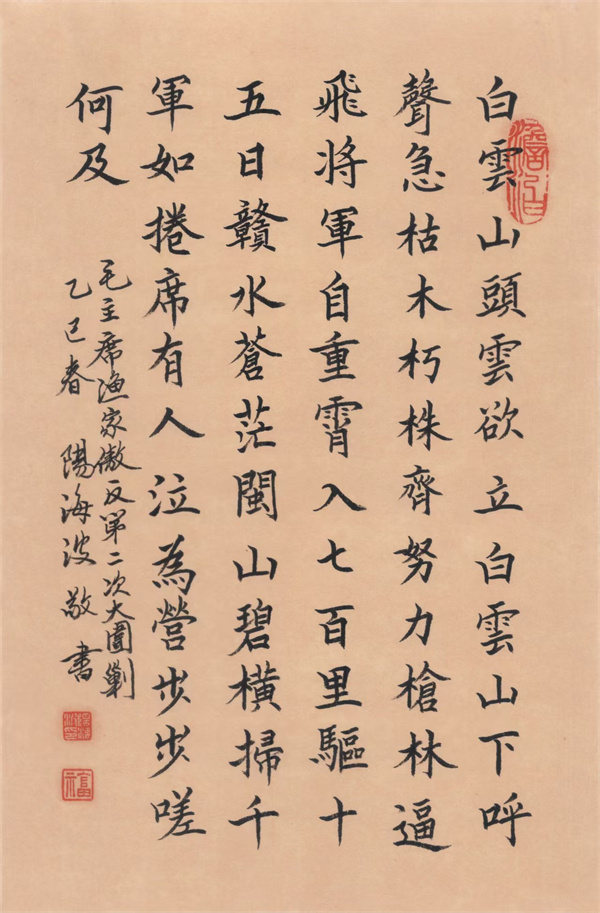 白雲山頭雲欲立白雲山下呼
聲急枯木朽株齊努力槍林逼
飛將軍自重霄入七百里驅十
五日贛水蒼茫閩山碧橫掃千
軍如捲席有人泣為營步步嗟
何及
毛主席漁家傲反第二次大圍剿
乙巳春 陽海波敬書